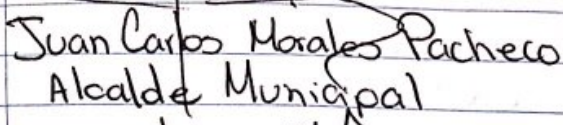 Juan Carlos Morales Pacheco
Alcalde Municipal